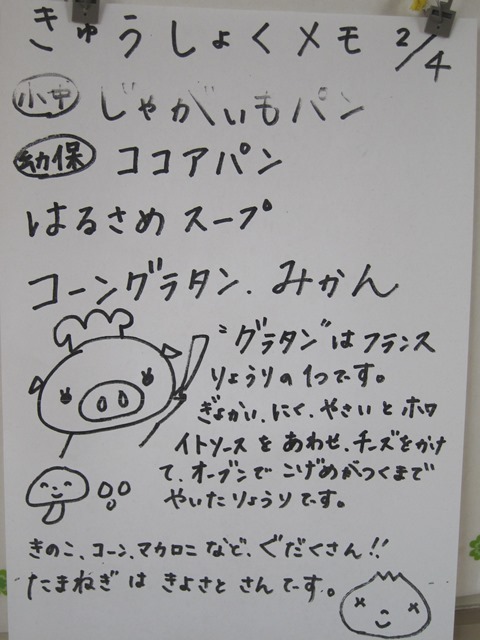 きゅうしょくメモ 2/4
小中 じゃがいもパン
幼保 ココアパン
はるさめスープ
コーングラタン. みかん
"グラタン"はフランス
りょうりの1つです。
ぎょかい、にく、やさいとホワ
イトソースをあわせ、チーズをかけ
て、オーブンでこげめがつくまで
やいたりょうりです。
きのこ、コーン、マカロニなど、ぐだくさん!!
たまねぎはきよさとさんでーす。